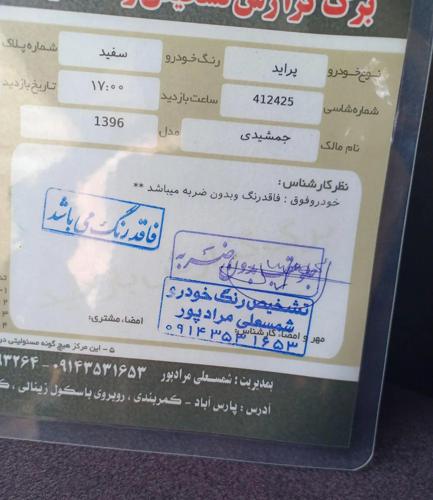 برگ گزارش تشخیص رنگ
نوع خودرو پراید رنگ خودرو سفید شماره پلاک
شماره شاسی 412425 ساعت بازدید ۱۷:۰۰ تاریخ بازدید
نام مالک جمشیدی مدل 1396
نظر کارشناس:
خودروفوق : فاقدرنگ وبدون ضربه میباشد **
فاقد رنگ می باشد
بدون ضربه
تشخیص رنگ خودرو
شمسعلی مرادپور
۰۹۱۴۳۵۳۱۶۵۳
مهر و امضاء کارشناس: امضاء مشتری:
۵ - این مرکز هیچ گونه مسئولیتی در
بمدیریت : شمسعلی مرادپور ۰۹۱۴۳۵۳۱۶۵۳ -
آدرس : پارس آباد - کمربندی ، روبروی باسکول زینالی ،